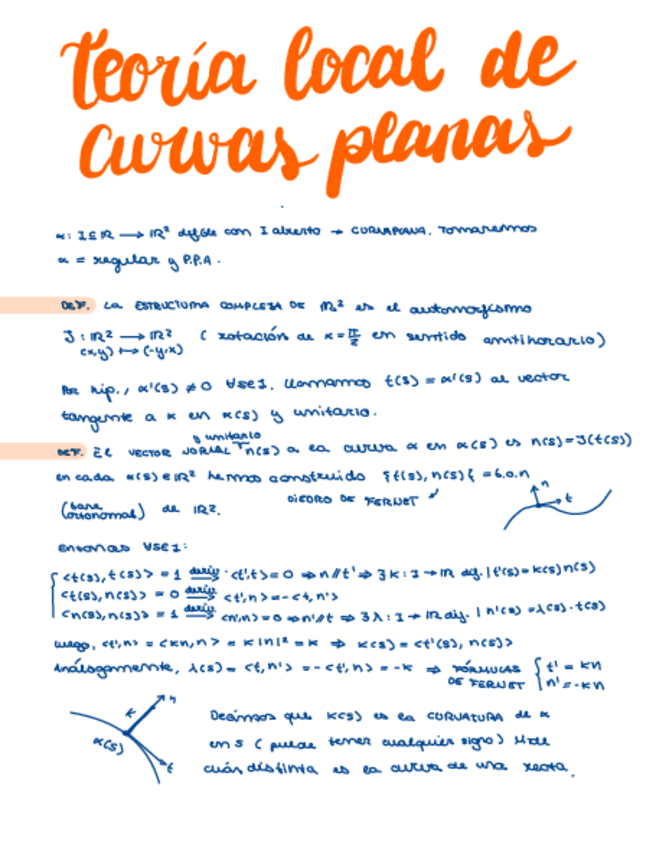 Teoría local de
curvas planas
α: I ⊆ ℝ → ℝ² difble con I abierto → CURVA PLANA. Tomaremos
α = regular y P.P.A.
DEF. La ESTRUCTURA COMPLEJA DE ℝ² es el automorfismo
J: ℝ² → ℝ² ( rotación de α = π/2 en sentido antihorario)
(x,y) ↦ (-y,x)
Por hip., α'(s) ≠ 0 ∀s∈I. Llamamos t(s) = α'(s) al vector
tangente a α en α(s) y unitario.
y unitario
DEF. El VECTOR NORMAL n(s) a la curva α en α(s) es n(s)=J(t(s))
en cada α(s)∈ℝ² hemos construido {t(s), n(s)} = b.o.n
DIEDRO DE FERNET
(base ortonomal) de ℝ².
n
t
entonces ∀s∈I:
<t(s), t(s)> = 1 deriv. <t',t>=0 ⇒ n // t' ⇒ ∃ k: I → ℝ dif. | t'(s)=k(s)n(s)
<t(s), n(s)> = 0 deriv. <t',n> = -<t,n'>
<n(s), n(s)> = 1 deriv. <n',n>=0 ⇒ n' // t ⇒ ∃ λ: I → ℝ dif. | n'(s) = λ(s)·t(s)
Luego, <t',n> = <kn,n> = k|n|² = k ⇒ k(s) = <t'(s), n(s)>
Análogamente, λ(s) = <t,n'> = -<t',n> = -k ⇒ FÓRMULAS { t' = kn
DE FERNET n' = -kn
k
n
α(s)
t
Decimos que k(s) es la CURVATURA de α
en s ( puede tener cualquier signo) Mide
cuán distinta es la curva de una recta.